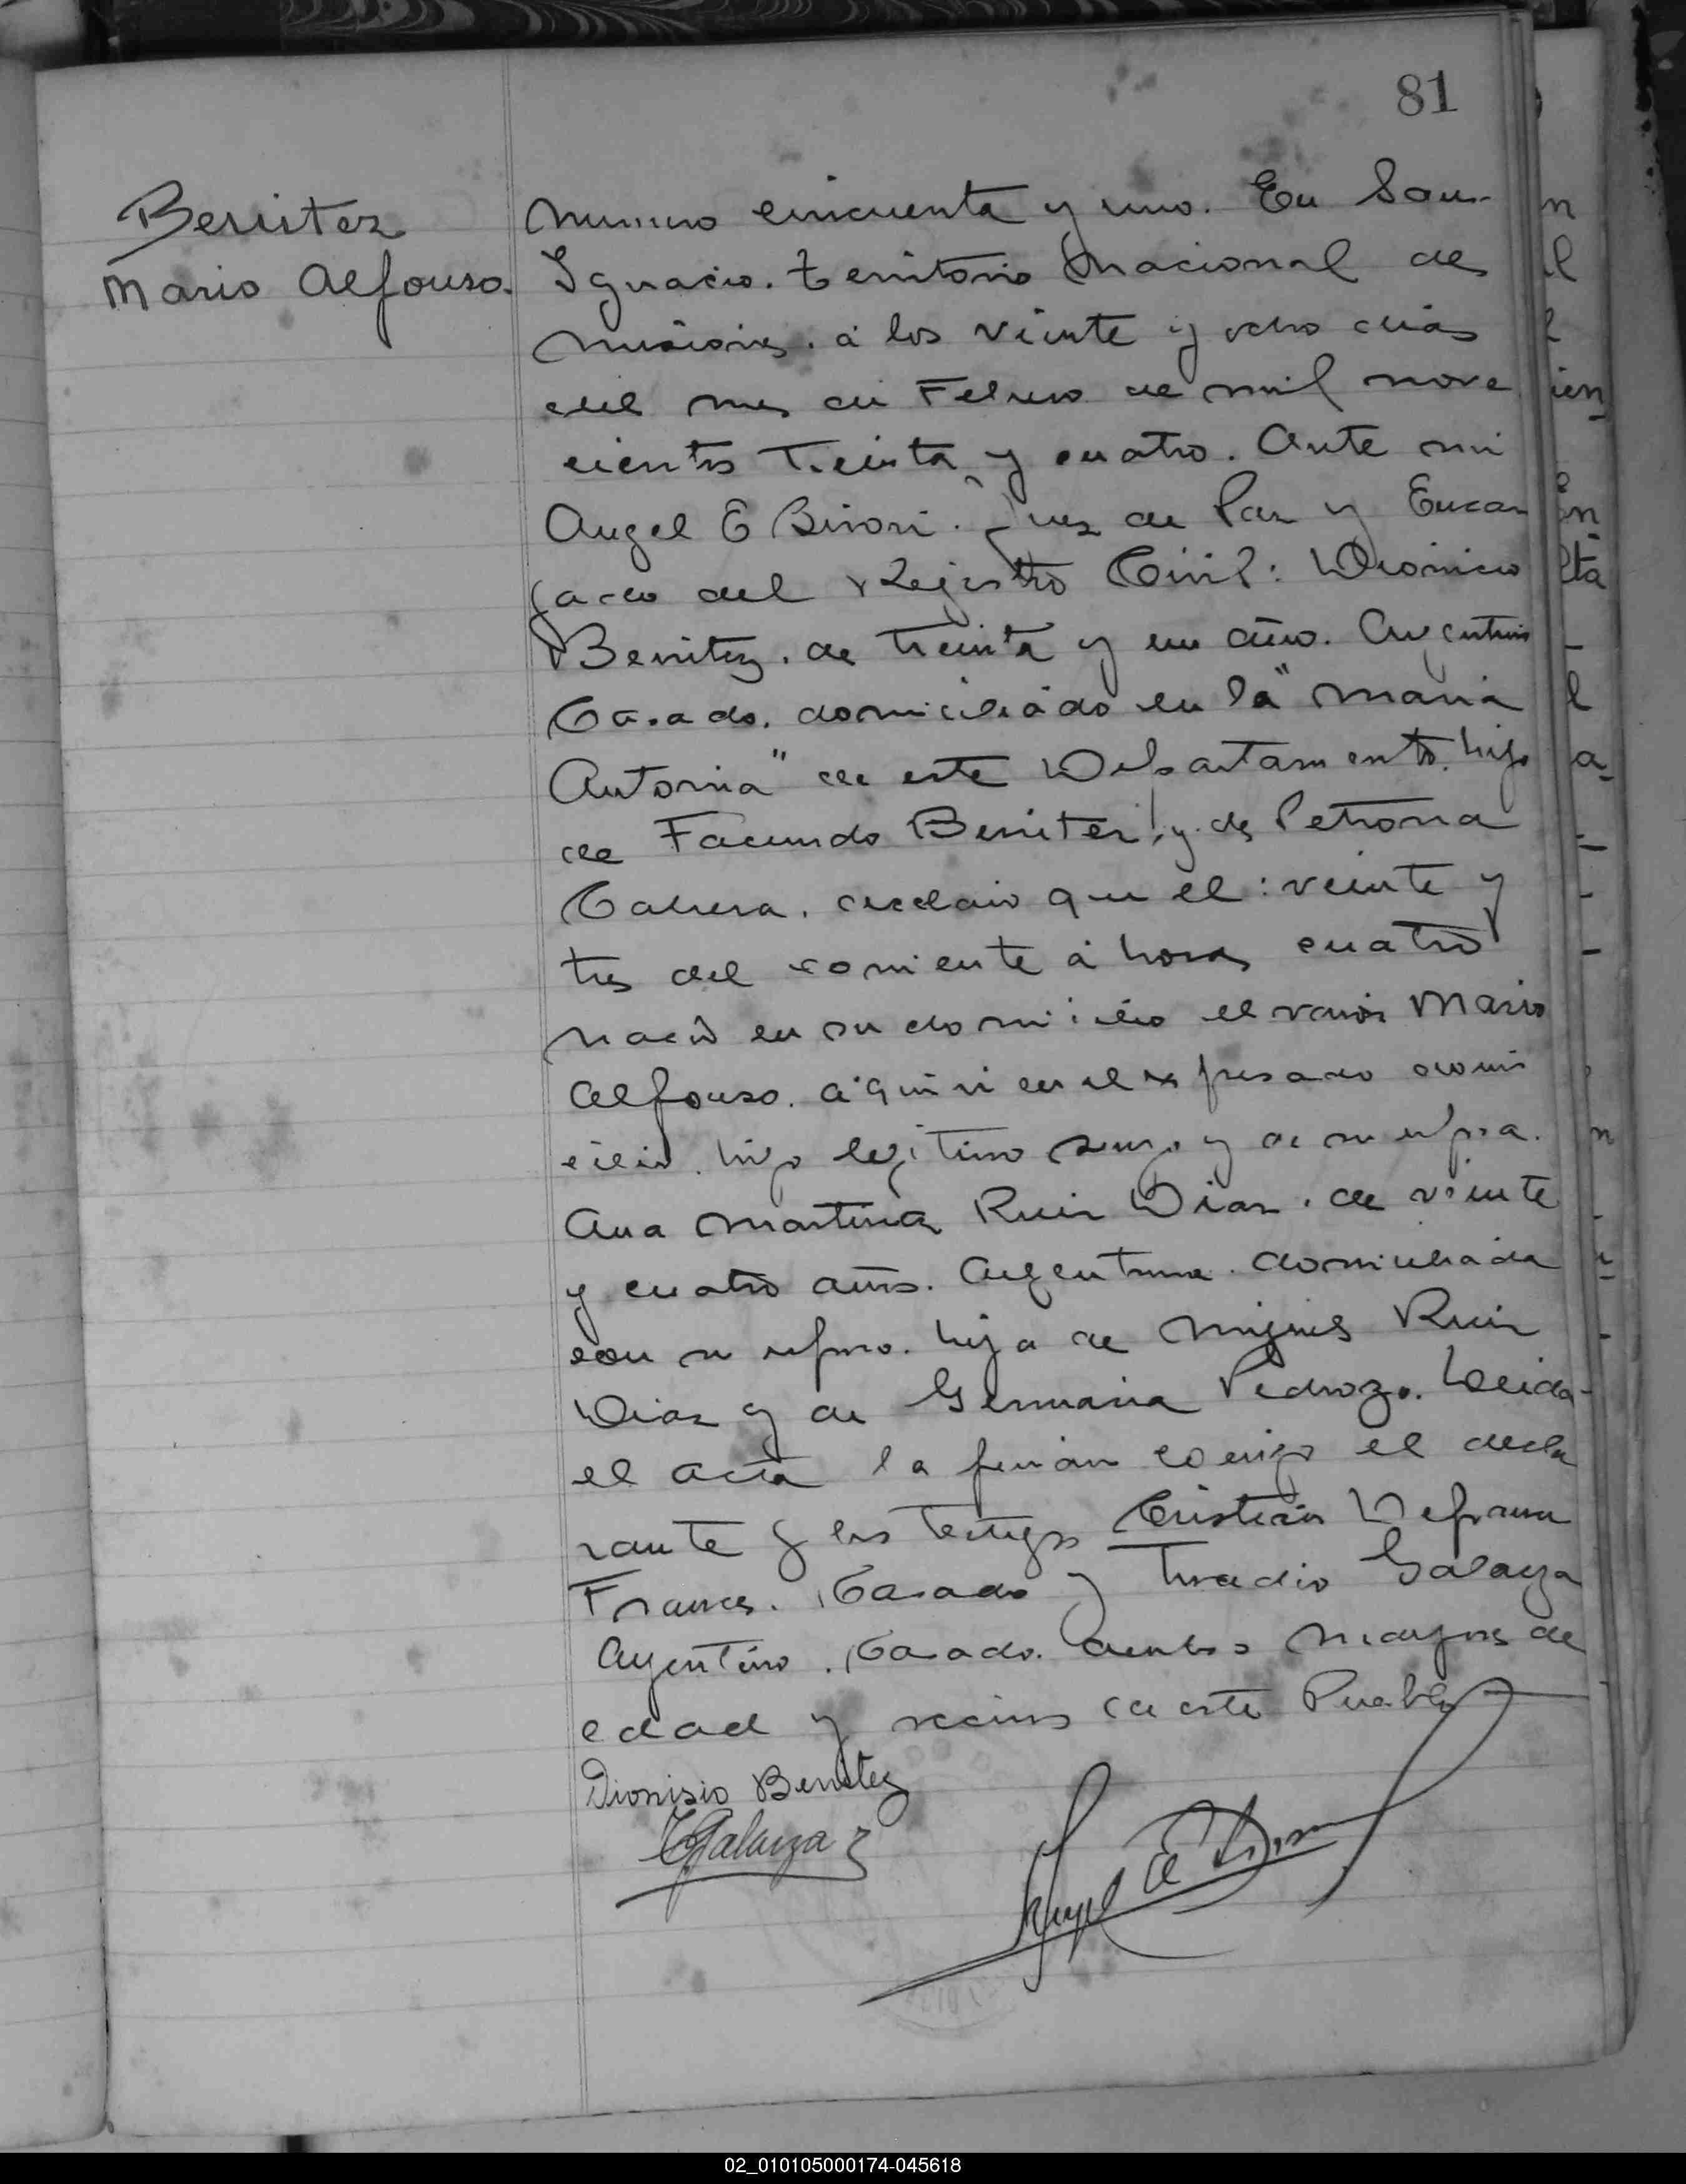 81
Benitez
Mario Alfonso.
Numero cincuenta y uno. En San
Ignacio. Territorio Nacional de
Misiones. a los veinte y ocho dias
del mes de Febrero de mil nove
cientos Treinta y cuatro. Ante mi
Angel E Birori. Juez de Paz y Encar
gado del Registro Civil: Dionicio
Benitez. de treinta y un año. Argentino
Casado. domiciliado en la "Maria
Antonia" de este Departamento. hijo
de Facundo Benitez y de Petrona
Cabrera. declaro que el: veinte y
tres del corriente á horas cuatro
nació en su domicilio el varon Mario
Alfonso. a quien vi en el expresado domi
cilio. hijo legitimo suyo y de su esposa.
Ana Martina Ruiz Diaz. de veinte
y cuatro años. Argentina. domiciliada
con su esposo. hija de Miguel Ruiz
Diaz y de Germana Pedrozo. Leida
el acta la firman conmigo el decla
rante y los testigos Cristian
Frances. Casado y Galarza
Argentino. Casado. ambos mayores de
edad y vecinos de este Pueblo
Dionisio Benitez
Galarza
Angel E
02_010105000174-045618